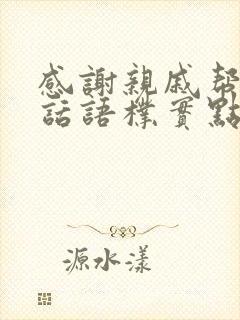 感謝親戚幫
話語樸實點
源水漾